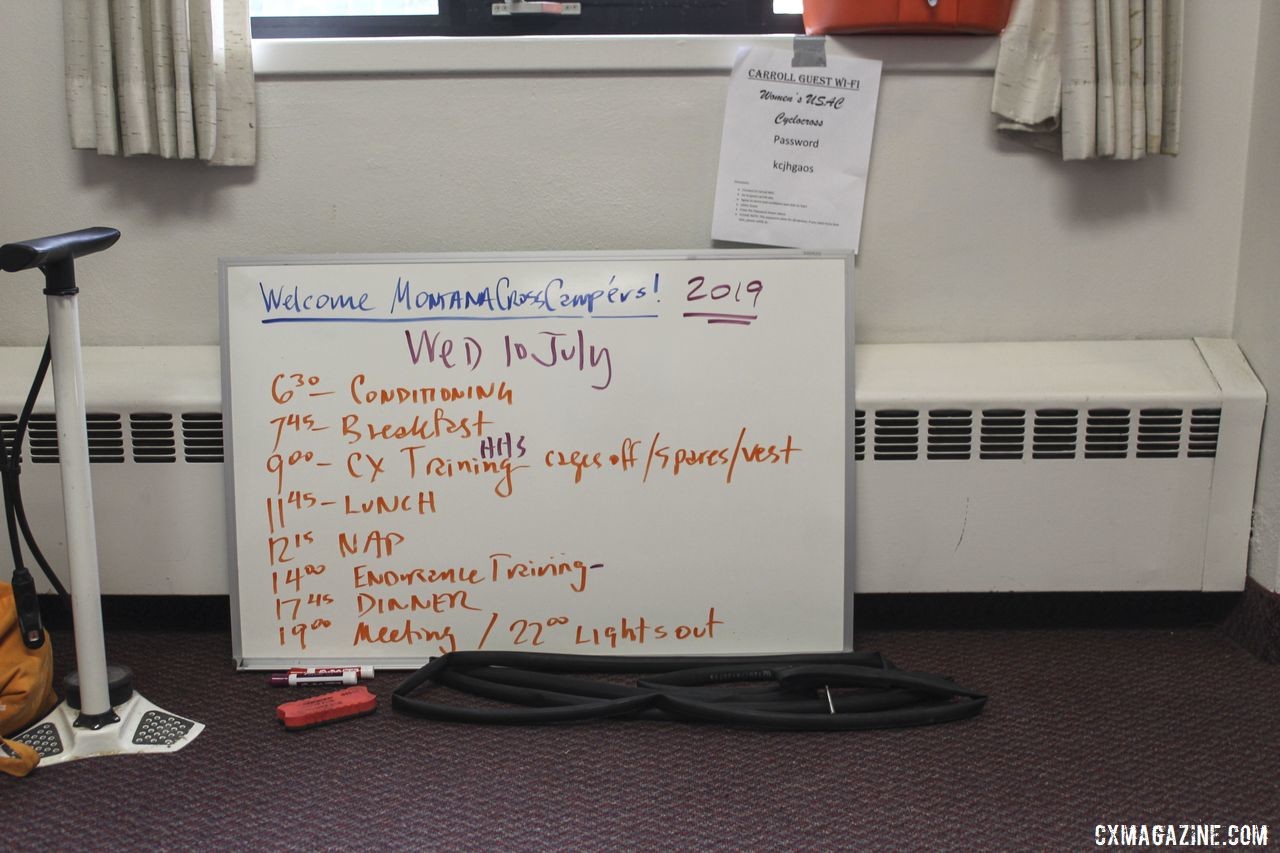 CARROLL GUEST WI-FI
Women's USAC
Cyclocross
Password
kcjhgaos
Welcome MONTANACrossCampérs! 2019
WED 10 July
6³⁰ – CONDITIONING
7⁴⁵ – Breakfast
HHS
9⁰⁰ – CX Training cages off/spares/vest
11⁴⁵ – LUNCH
12¹⁵ NAP
14⁰⁰ ENDURANCE Training-
17⁴⁵ DINNER
19⁰⁰ Meeting / 22⁰⁰ Lights out
CXMAGAZINE.COM